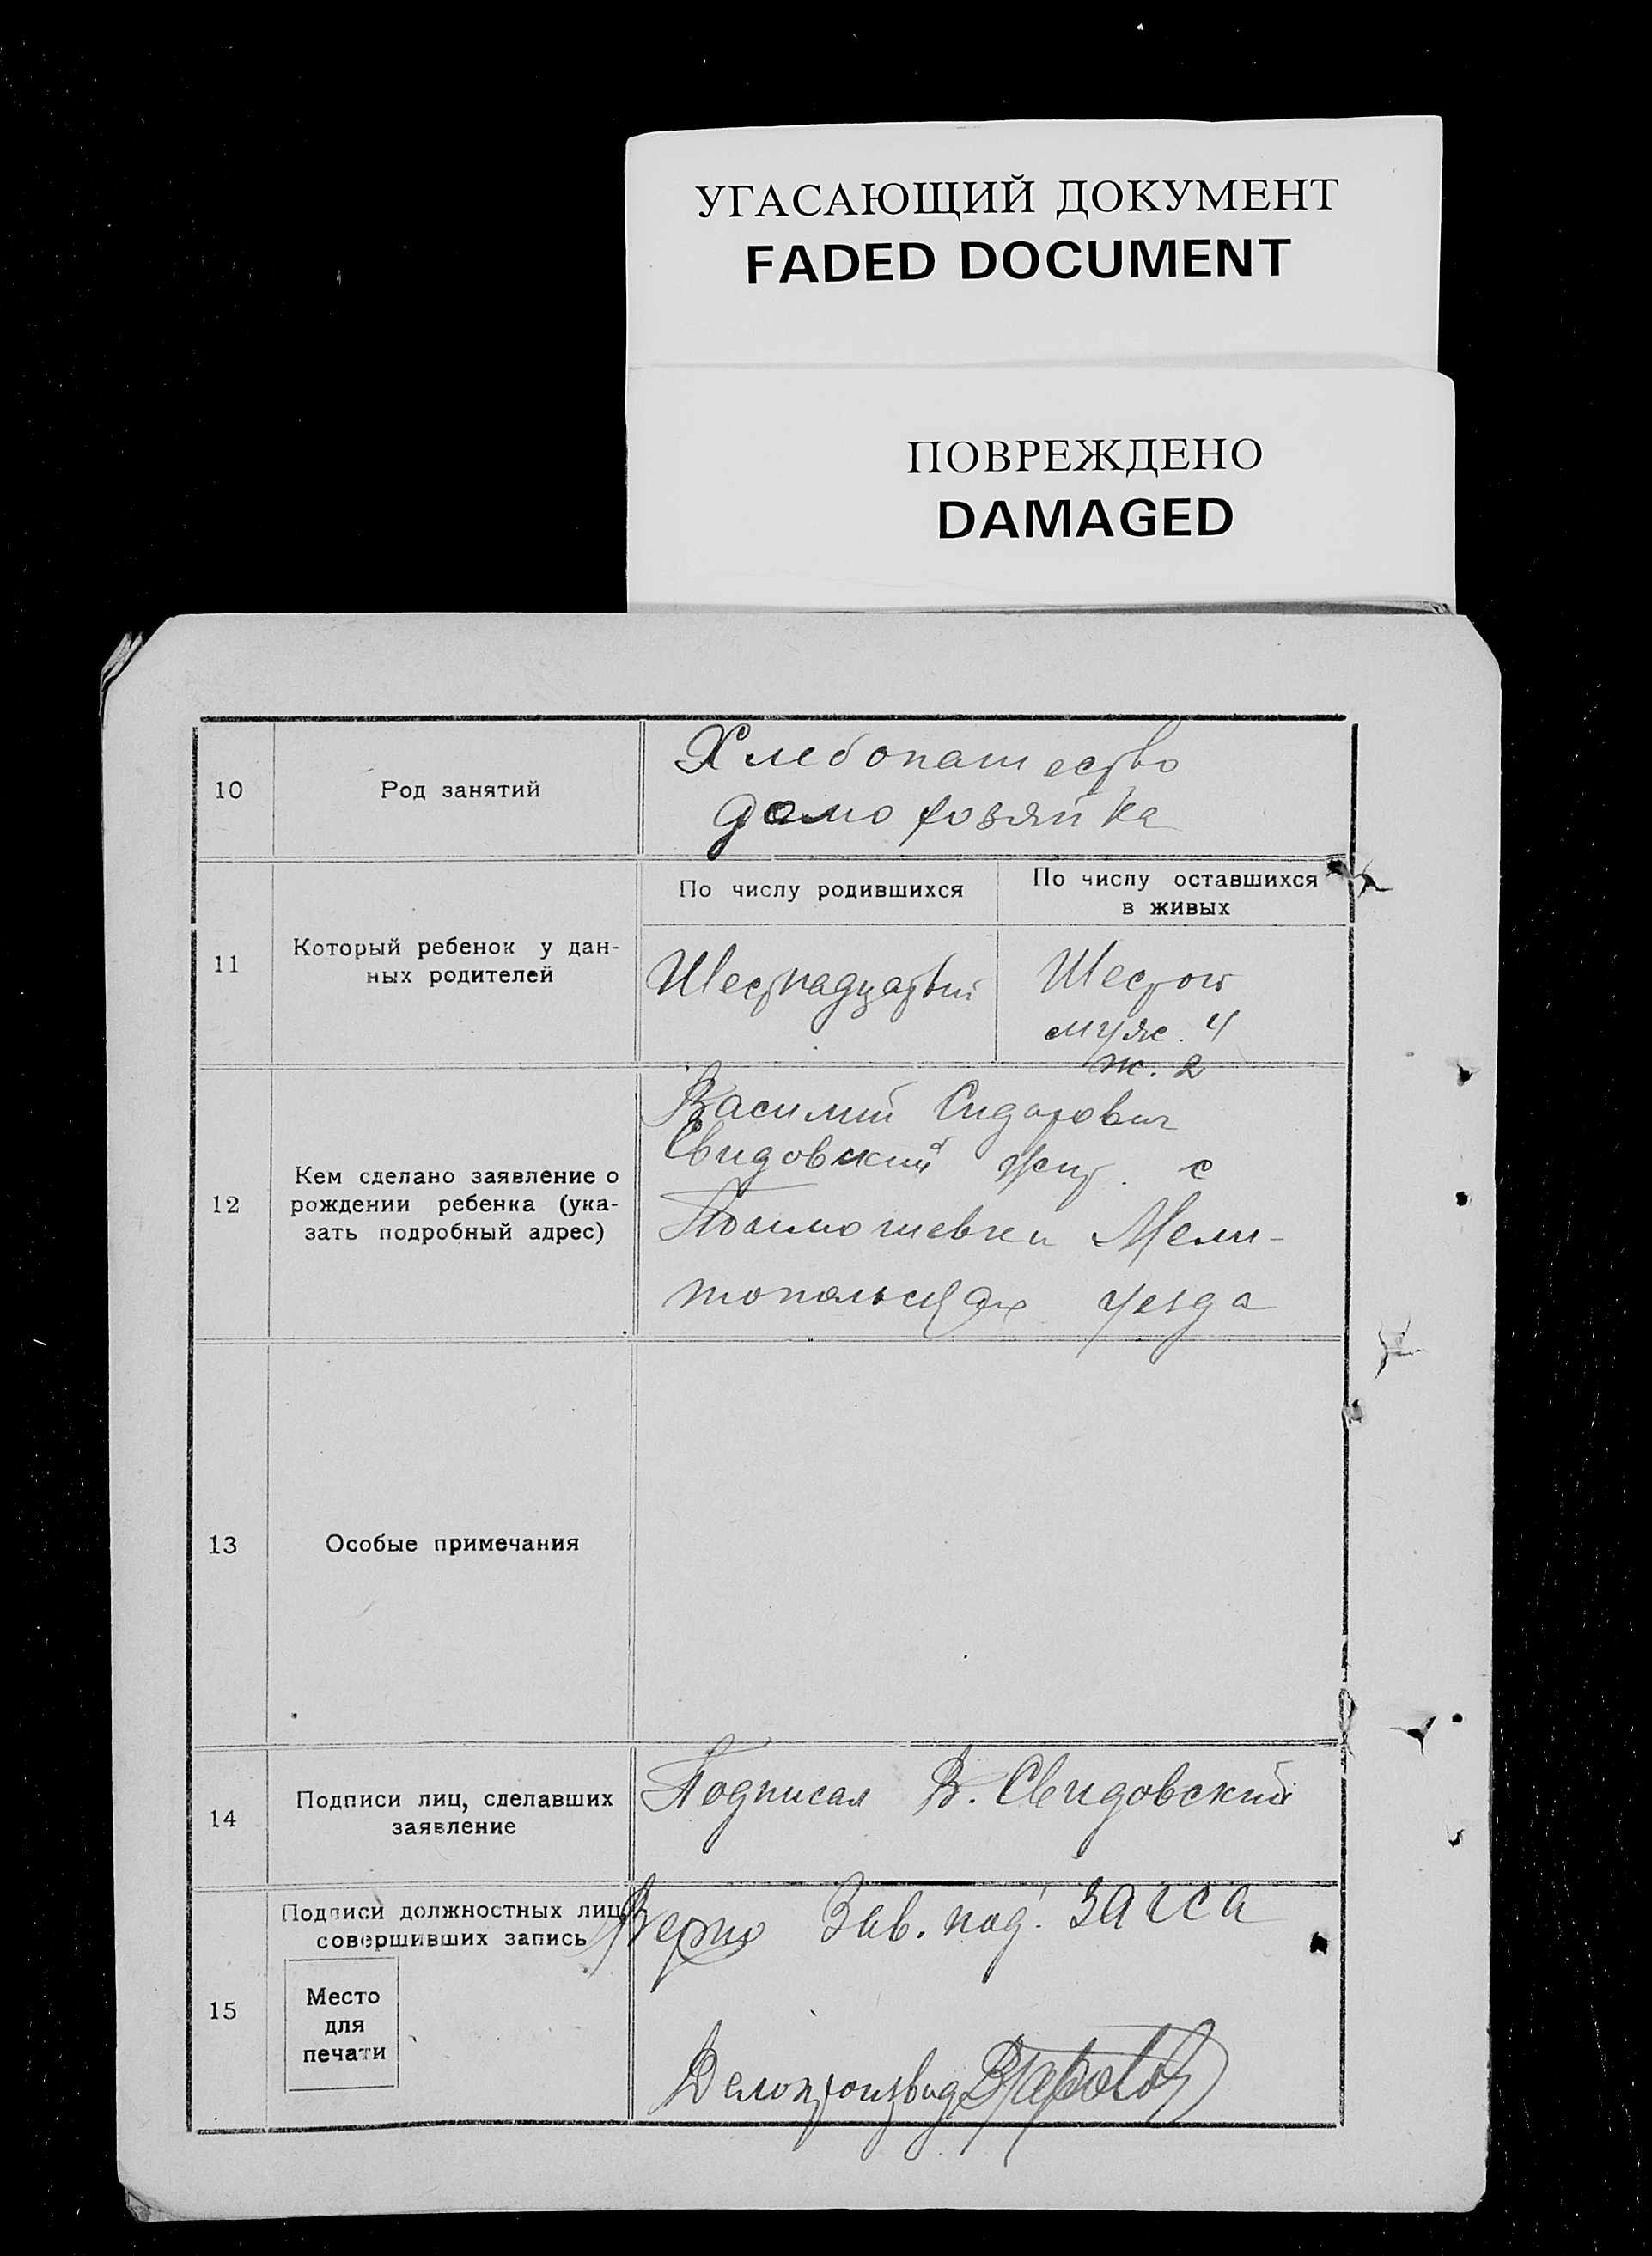 УГАСАЮЩИЙ ДОКУМЕНТ
FADED DOCUMENT
ПОВРЕЖДЕНО
DAMAGED
10
Род занятий
Хлебопашество
домохозяйка
11
Который ребенок у дан-
ных родителей
По числу родившихся
Шестнадцатый
По числу оставшихся
в живых
Шестой
муж. 4
ж. 2
12
Кем сделано заявление о
рождении ребенка (ука-
зать подробный адрес)
Василий Сидорович
Свидовский жит. с
Мели-
топольск уезда
13
Особые примечания
14
Подписи лиц, сделавших
заявление
Подписал В. Свидовский
15
Подписи должностных лиц,
совершивших запись
Место
для
печати
Верно Зав. под. ЗАГСА
Делопроизвод